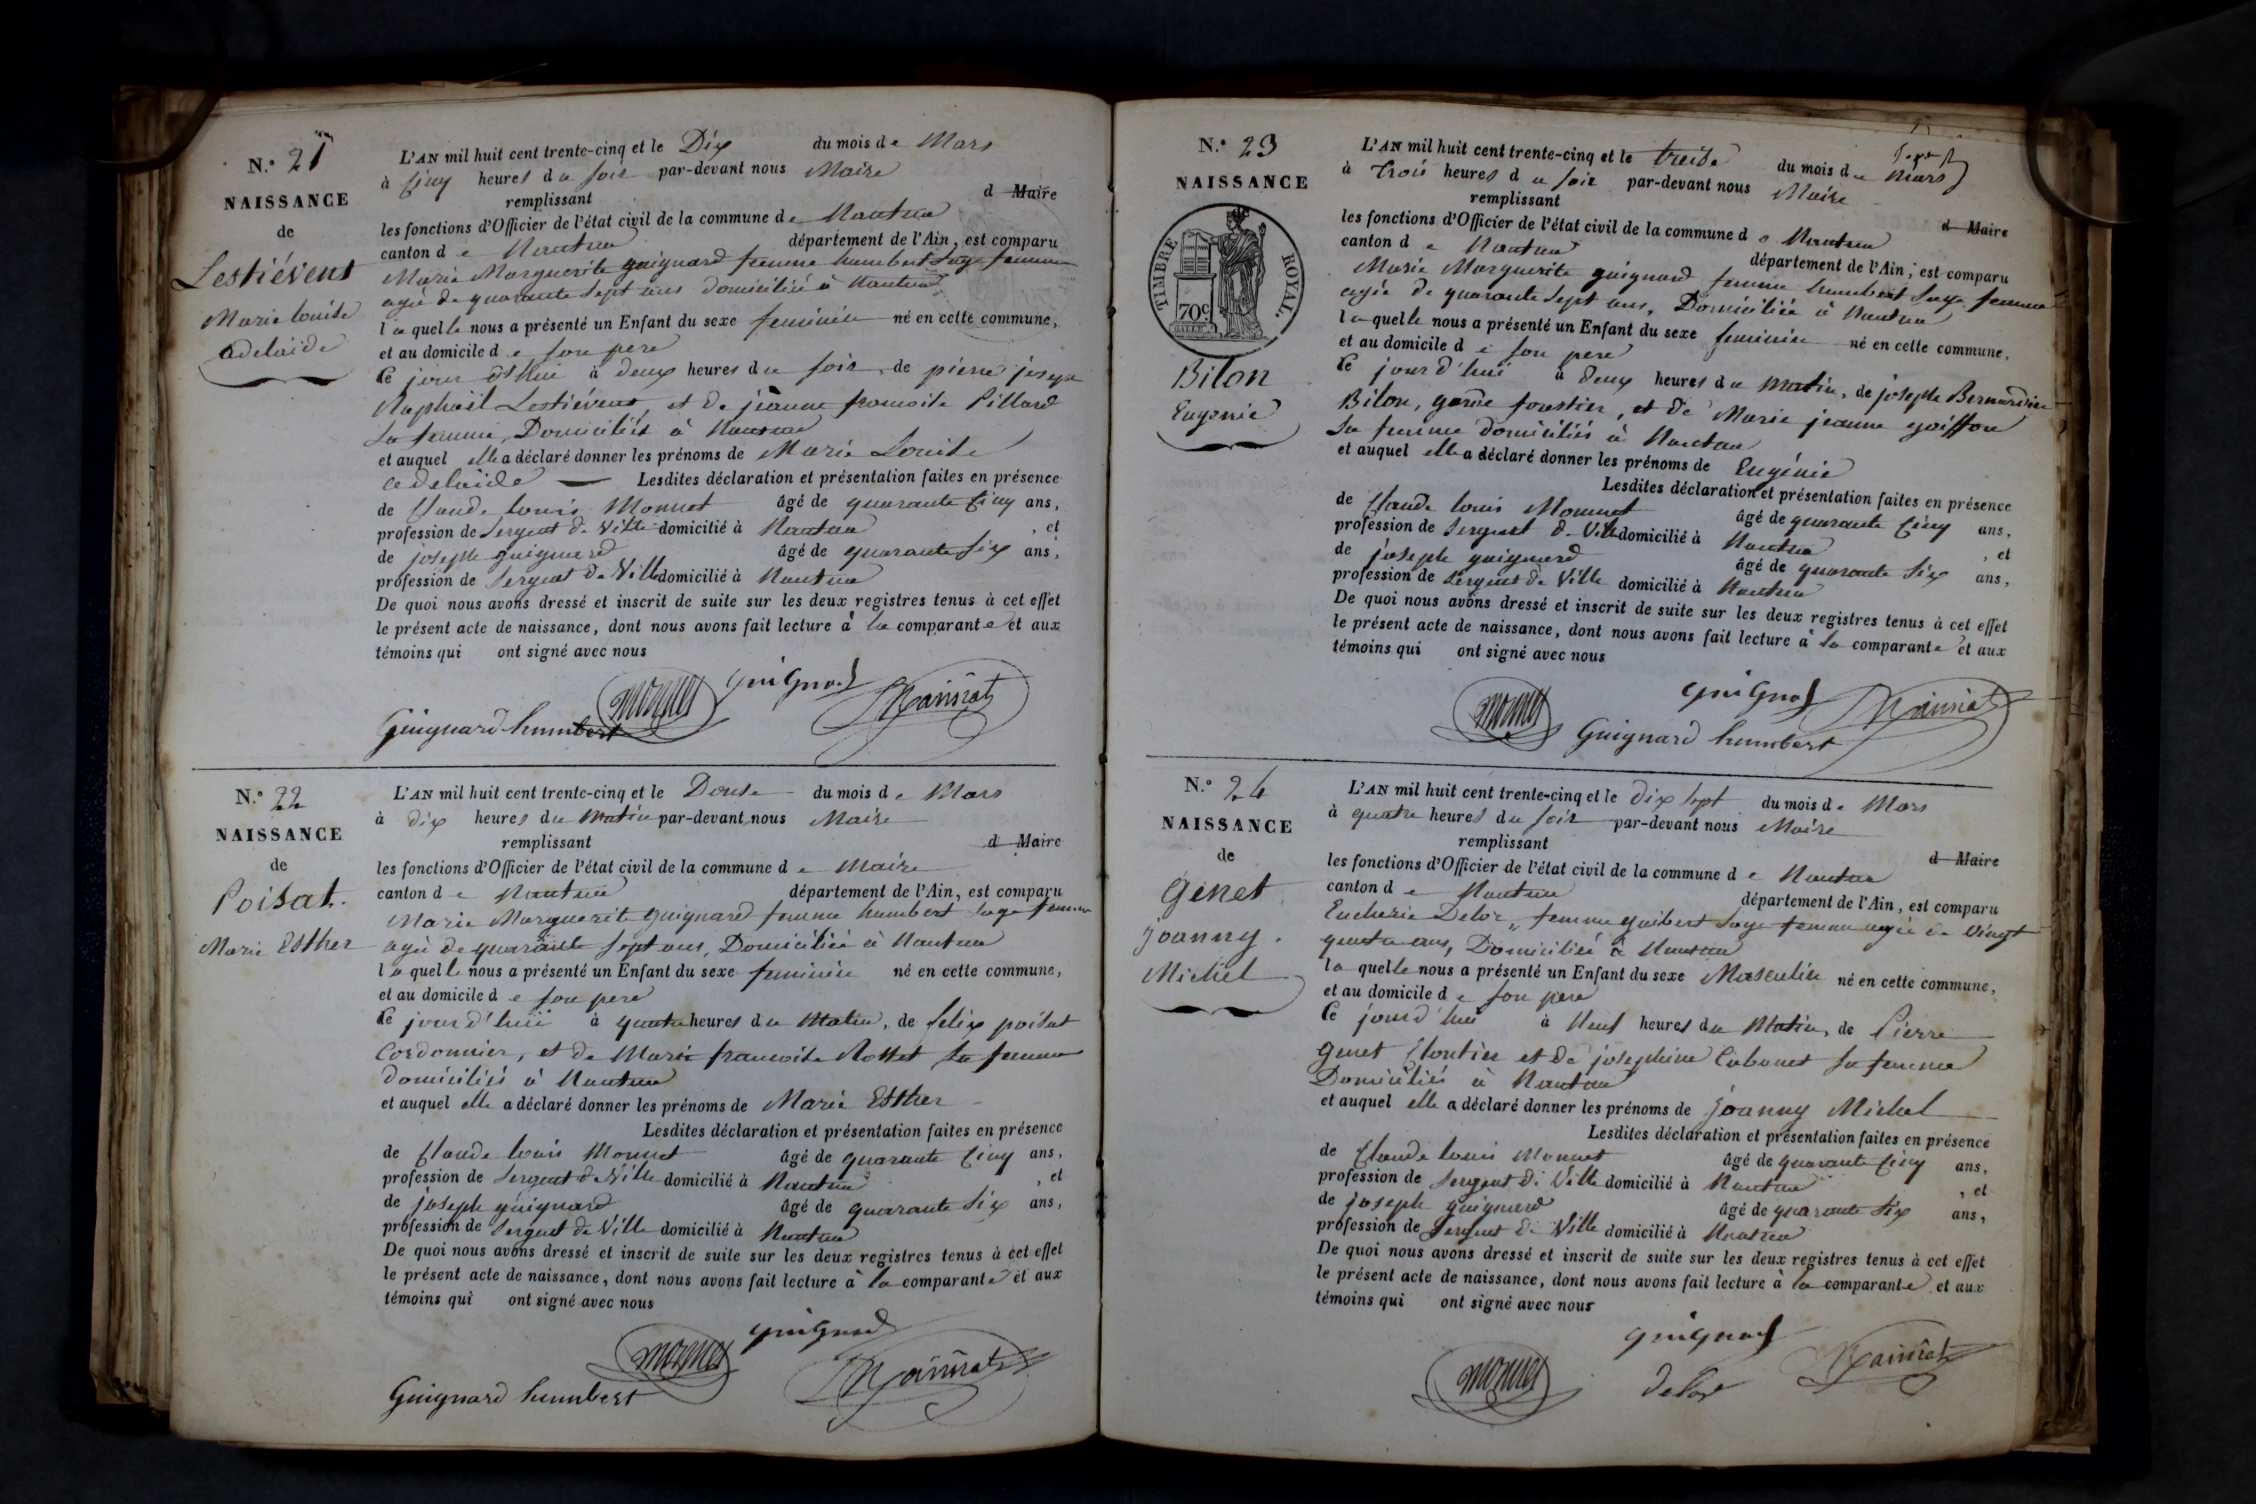 N.° 21
NAISSANCE
de
Lestiévent
Marie Louise
adelaïde
L'AN mil huit cent trente-cinq et le Dix du mois de Mars
à Cinq heures du soir par-devant nous Maire
remplissant d Maire
les fonctions d'Officier de l'état civil de la commune de Nantua
canton de Nantua département de l'Ain, est comparu
Marie Marguerite guignard femme humbert Sage femme
agée de quarante Sept ans domiciliée à Nantua
laquelle nous a présenté un Enfant du sexe feminin né en cette commune,
et au domicile de son pere
Ce jour d'hui à deux heures du soir, de pierre joseph
Raphaël Lestiévent, et de jeanne francoise Pillard
Sa femme, Domiciliés à Nantua
et auquel elle a déclaré donner les prénoms de Marie Louise
adelaïde Lesdites déclaration et présentation faites en présence
de Claude louis Monnet âgé de quarante Cinq ans,
profession de Sergent de Ville domicilié à Nantua , et
de joseph guignard âgé de quarante Six ans,
profession de Sergent de Ville domicilié à Nantua
De quoi nous avons dressé et inscrit de suite sur les deux registres tenus à cet effet
le présent acte de naissance, dont nous avons fait lecture à la comparante et aux
témoins qui ont signé avec nous
guignard
monnet
Guignard humbert
N.° 22
NAISSANCE
de
Poisat.
Marie Esther
L'AN mil huit cent trente-cinq et le Douse du mois de Mars
à dix heures du Matin par-devant nous Maire
remplissant d Maire
les fonctions d'Officier de l'état civil de la commune de Maire
canton de Nantua département de l'Ain, est comparu
Marie Marguerite guignard femme humbert Sage femme
agée de quarante Sept ans, Domiciliée à Nantua
laquelle nous a présenté un Enfant du sexe feminin né en cette commune,
et au domicile de son pere
Ce jour d'hui à quatre heures du Matin, de felix poisat
Cordonnier, et de Marie francoise Rottet Sa femme
domiciliés à Nantua
et auquel elle a déclaré donner les prénoms de Marie Esther
Lesdites déclaration et présentation faites en présence
de Claude louis Monnet âgé de quarante Cinq ans,
profession de Sergent de Ville domicilié à Nantua , et
de joseph guignard âgé de quarante Six ans,
profession de Sergent de Ville domicilié à Nantua
De quoi nous avons dressé et inscrit de suite sur les deux registres tenus à cet effet
le présent acte de naissance, dont nous avons fait lecture à la comparante et aux
témoins qui ont signé avec nous
guignard
monnet
Guignard humbert
N.° 23
NAISSANCE
TIMBRE ROYAL
70c
Bilon
Eugenie
L'AN mil huit cent trente-cinq et le treise du mois de Mars
à Trois heures du soir par-devant nous Maire
remplissant d Maire
les fonctions d'Officier de l'état civil de la commune de Nantua
canton de Nantua département de l'Ain, est comparu
Marie Marguerite guignard femme humbert Sage femme
agée de quarante Sept ans, Domiciliée à Nantua
laquelle nous a présenté un Enfant du sexe feminin né en cette commune,
et au domicile de son pere
Ce jour d'hui à deux heures du Matin, de joseph Bernardin
Bilon, garde forestier, et de Marie jeanne goiffon
Sa femme domiciliés à Nantua
et auquel elle a déclaré donner les prénoms de Eugénie
Lesdites déclaration et présentation faites en présence
de Claude louis Monnet âgé de quarante Cinq ans,
profession de Sergent de Ville domicilié à Nantua , et
de joseph guignard âgé de quarante Six ans,
profession de Sergent de Ville domicilié à Nantua
De quoi nous avons dressé et inscrit de suite sur les deux registres tenus à cet effet
le présent acte de naissance, dont nous avons fait lecture à la comparante et aux
témoins qui ont signé avec nous
guignard
monnet
Guignard humbert
N.° 24
NAISSANCE
de
Genet
joanny
Michel
L'AN mil huit cent trente-cinq et le dix Sept du mois de Mars
à quatre heures du soir par-devant nous Maire
remplissant d Maire
les fonctions d'Officier de l'état civil de la commune de Nantua
canton de Nantua département de l'Ain, est comparu
Eucherie Delor, femme guibert Sage femme agée de Vingt
quatre ans, Domiciliée à Nantua
laquelle nous a présenté un Enfant du sexe Masculin né en cette commune,
et au domicile de son pere
Ce jour d'hui à Neuf heures du Matin, de Pierre
Genet Cloutier et de josephine Cabanet Sa femme
Domiciliés à Nantua
et auquel elle a déclaré donner les prénoms de joanny Michel
Lesdites déclaration et présentation faites en présence
de Claude louis Monnet âgé de quarante Cinq ans,
profession de Sergent de Ville domicilié à Nantua , et
de joseph guignard âgé de quarante Six ans,
profession de Sergent de Ville domicilié à Nantua
De quoi nous avons dressé et inscrit de suite sur les deux registres tenus à cet effet
le présent acte de naissance, dont nous avons fait lecture à la comparante et aux
témoins qui ont signé avec nous
guignard
monnet
delor